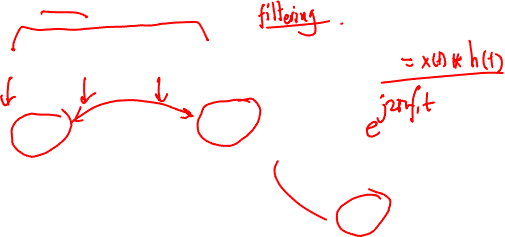 filtering.
= x(t) * h(t)
e^{j2πf_1t}